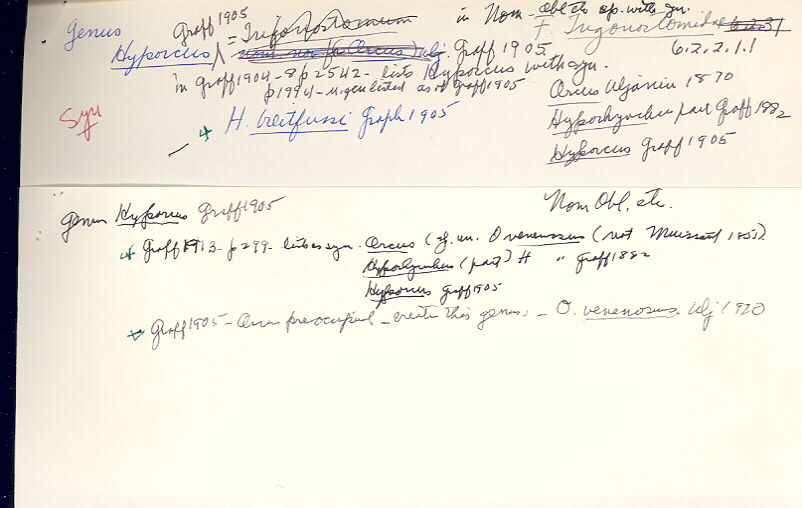 Genus Graff 1905 = Trigonostomum in Nom-Obl etc sp. with gn.
Hyporcus nom. nov. (for Orcus) Ulj Graff 1905 F. Trigonostomidae
6.2.2.1.1
in Graff 1904-8 p 2542 - lists Hyporcus with syn.
p 1994 - n.gen listed as of Graff 1905 Orcus Uljanin 1870
Syn H. breitfussi Graph 1905 Hyporhynchus part Graff 1882
Hyporcus Graff 1905
Genus Hyporcus Graff 1905 Nom Obl, etc.
Graff 1913 - p 299 - lists as syn. Orcus (sp. un. O venenosus (not Muissart 1851).
Hyporhynchus (part) H " Graff 1882
Hyporcus Graff 1905
Graff 1905 - Orcus preoccupied - create this genus. - O. venenosus Ulj 1920